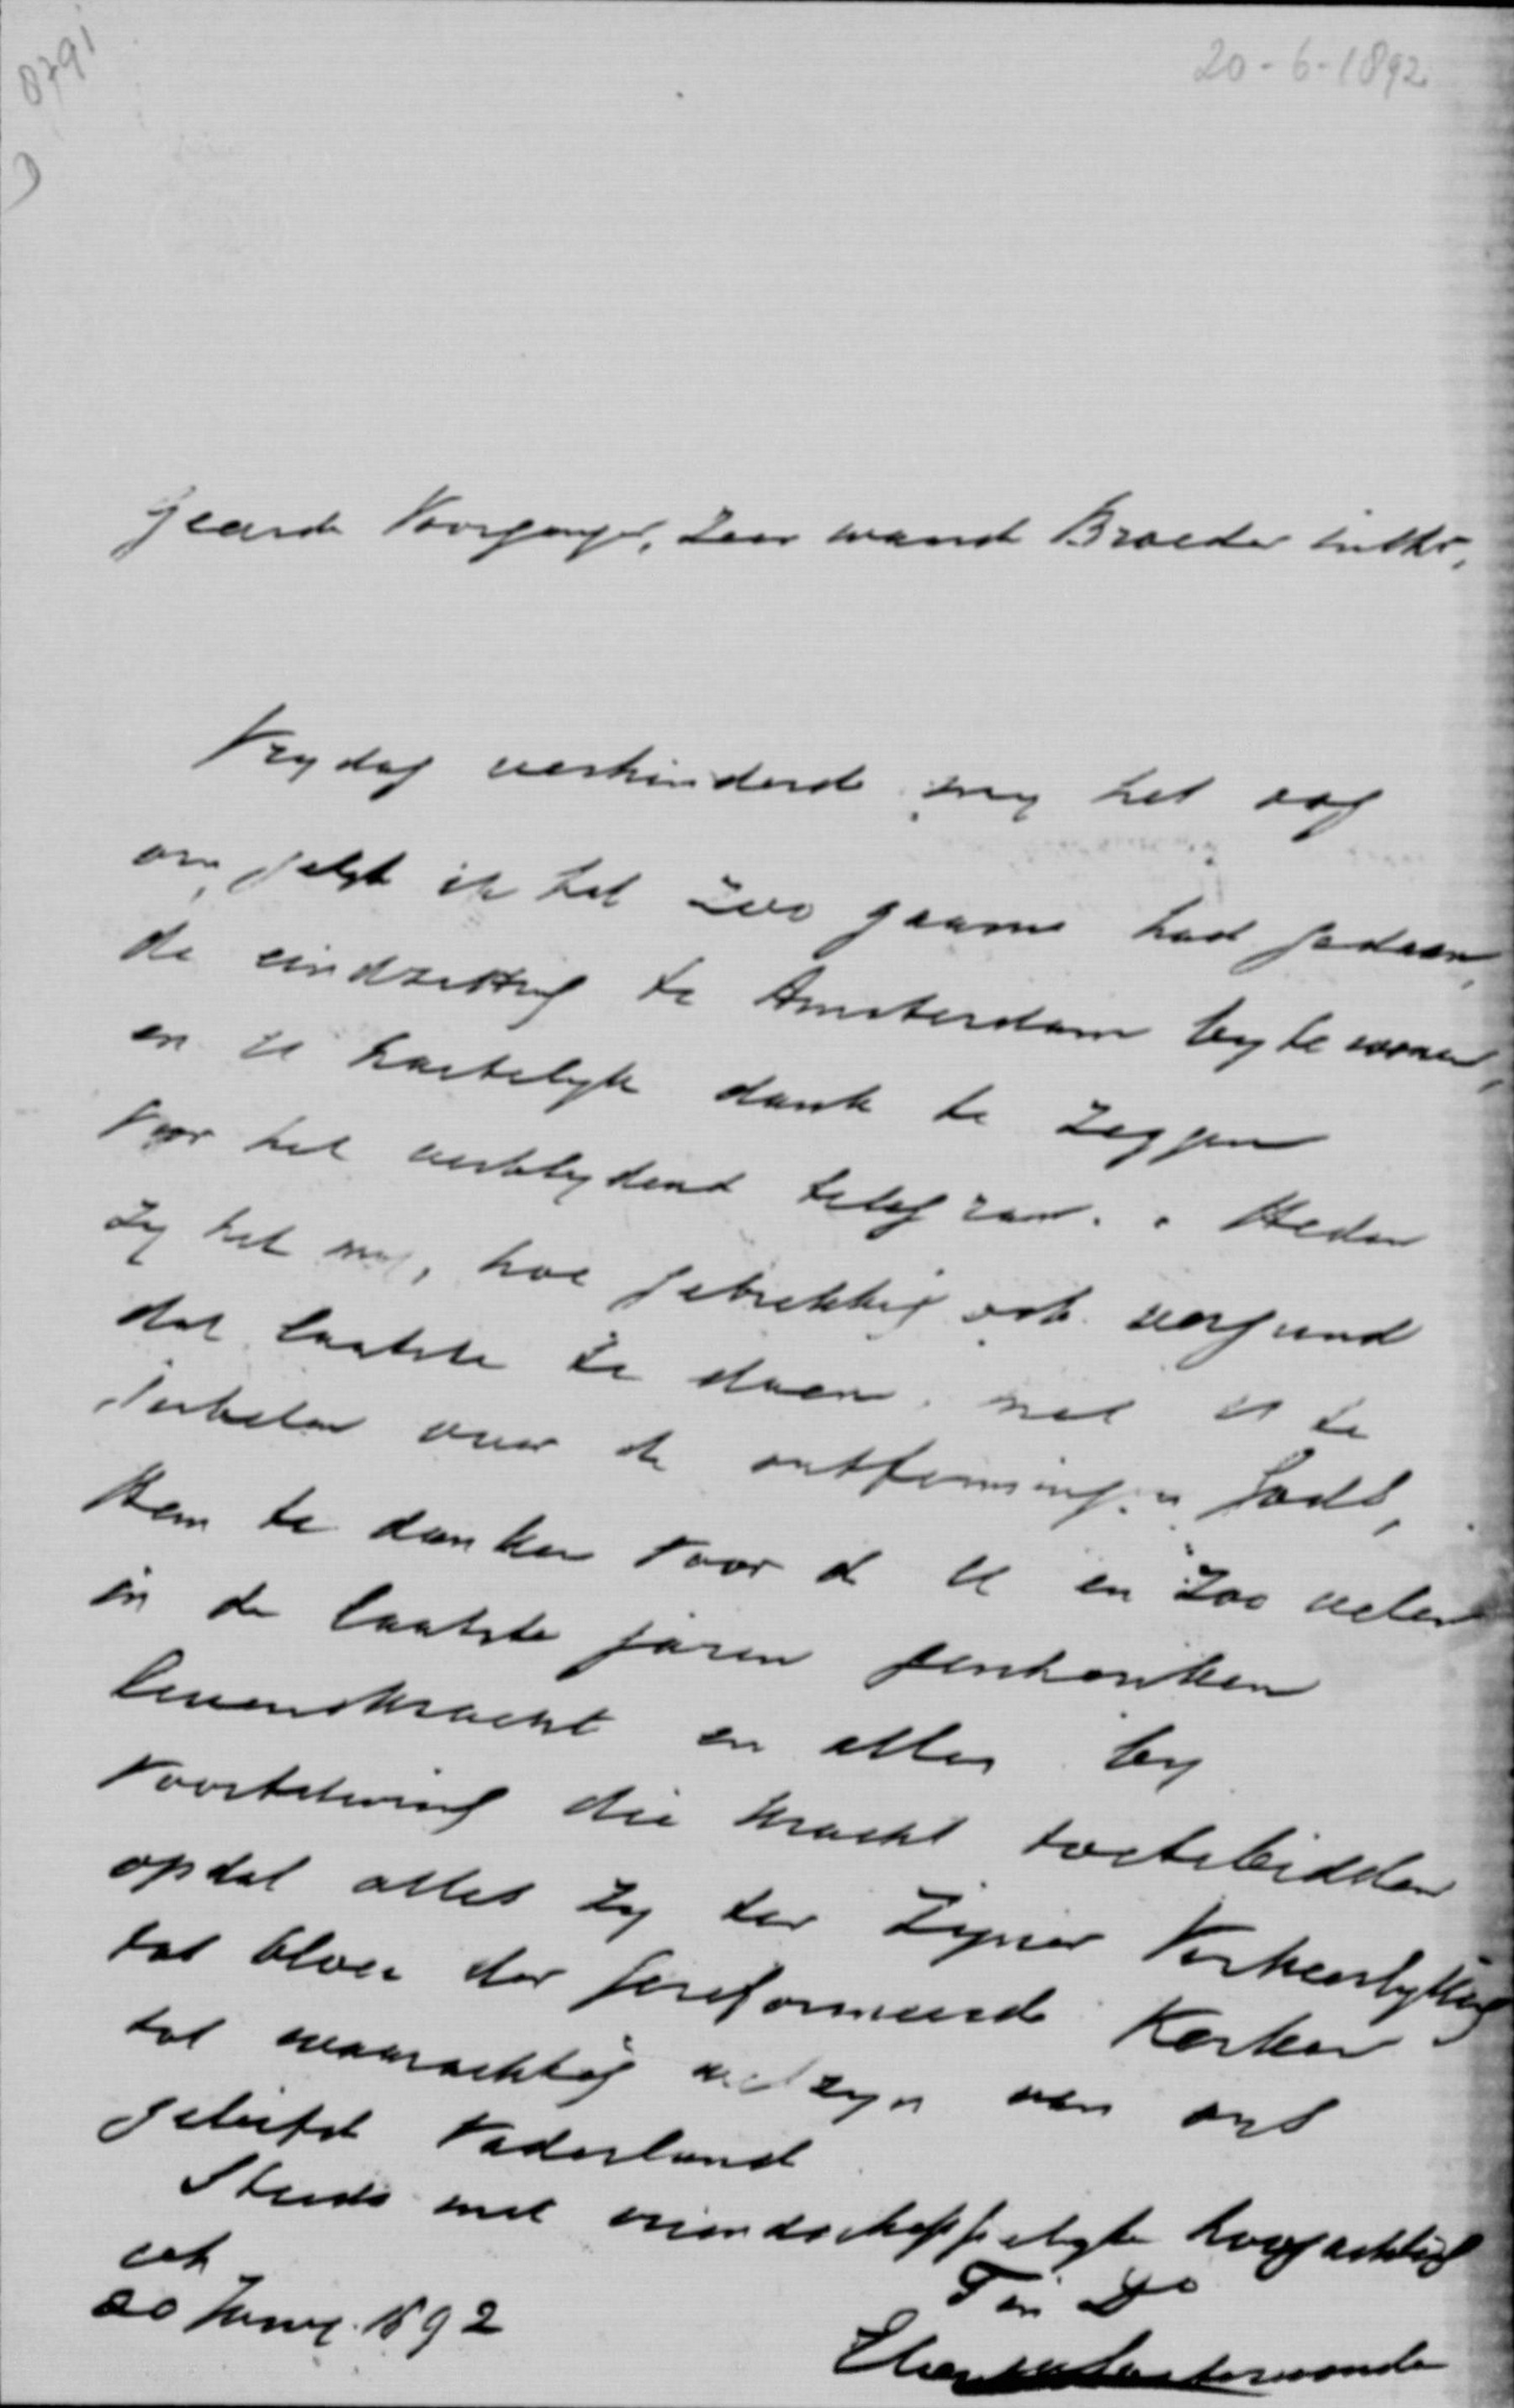 8791
20-6-1892
Geeerde Voorganger, Zeer waarde Broeder in Chr,
Vrydag verhinderde my het oog
om, gelyk ik het zoo gaarne had gedaan,
de eindzitting te Amsterdam by te wonen,
en U hartelyk dank te zeggen
voor het verblydend telegram. Heden
zy het my, hoe gebrekkig ook vergund
dat laatste te doen, met U te
jubelen over de ontfermingen Gods,
Hem te danken voor d U en zoo velen
in de laatste jaren geschonken
levenskracht en alles by
voortduring die kracht toetebidden
opdat alles zy ter Zijner Verheerlyking
tot bloei der Gereformeerde Kerken
tot waarachtig welzyn van ons
geliefd Vaderland
Steeds met vriendschappelyke hoogachting
20 Juny. 1892
T in D°